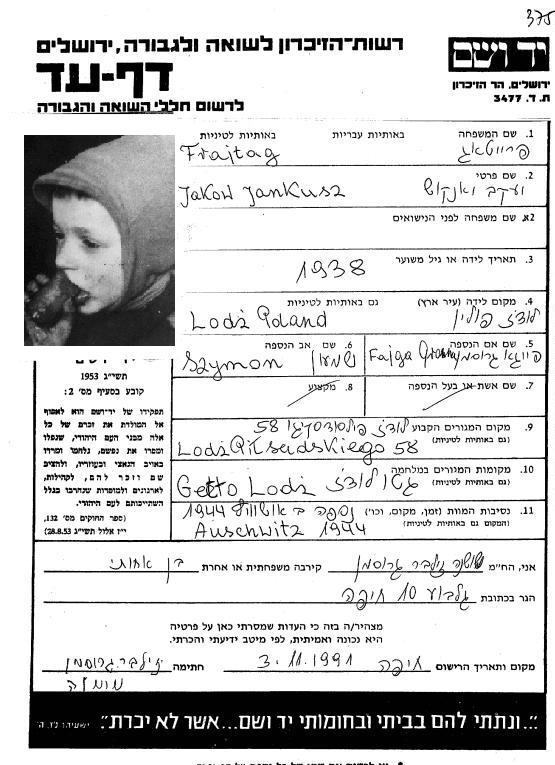 375
רשות-הזיכרון לשואה ולגבורה, ירושלים
יד ושם
דף-עד
ירושלים, הר הזיכרון
ת. ד. 3477
לרשום חללי השואה והגבורה
1. שם המשפחה באותיות עבריות באותיות לטיניות
פרייטאג Frajtag
2. שם פרטי
יעקב יאנקוש Jakow Jankusz
2א. שם משפחה לפני הנישואים
3. תאריך לידה או גיל משוער
1938
4. מקום לידה (עיר ארץ) גם באותיות לטיניות
לודז' פולין Lodż Poland
5. שם אם הנספה 6. שם אב הנספה
פייגא גרוסמן Fajga שמעון Szymon
7. שם אשת או בעל הנספה 8. מקצוע
9. מקום המגורים הקבוע
(גם באותיות לטיניות)
58
Lodż Piłsudskiego 58
10. מקומות המגורים במלחמה
(גם באותיות לטיניות)
גטו לודז' Getto Lodż
11. נסיבות המוות (זמן, מקום, וכו')
(המקום גם באותיות לטיניות)
נספה ב אושוויץ 1944
Auschwitz 1944
תשי"ג 1953
קובע בסעיף מס' 2:
תפקידו של יד-ושם הוא לאסוף
אל המולדת את זכרם של כל
אלה מבני העם היהודי, שנפלו
ומסרו את נפשם, נלחמו ומרדו
באויב הנאצי ובעוזריו, ולהציב
שם וזכר להם, לקהילות,
לארגונים ולמוסדות שנחרבו בגלל
השתייכותם לעם היהודי.
(ספר החוקים מס' 132,
י"ז אלול תשי"ג 28.8.53)
אני, הח"מ שושנה זילבר גרוסמן קירבה משפחתית או אחרת בן אחותי
הגר בכתובת גלבוע 10 חיפה
מצהיר/ה בזה כי העדות שמסרתי כאן על פרטיה
היא נכונה ואמיתית, לפי מיטב ידיעתי והכרתי.
מקום ותאריך הרישום חיפה 3.11.1991 חתימה זילבר גרוסמן
"ונתתי להם בביתי ובחומותי יד ושם...אשר לא יכרת". ישעיהו נ"ו, ה'